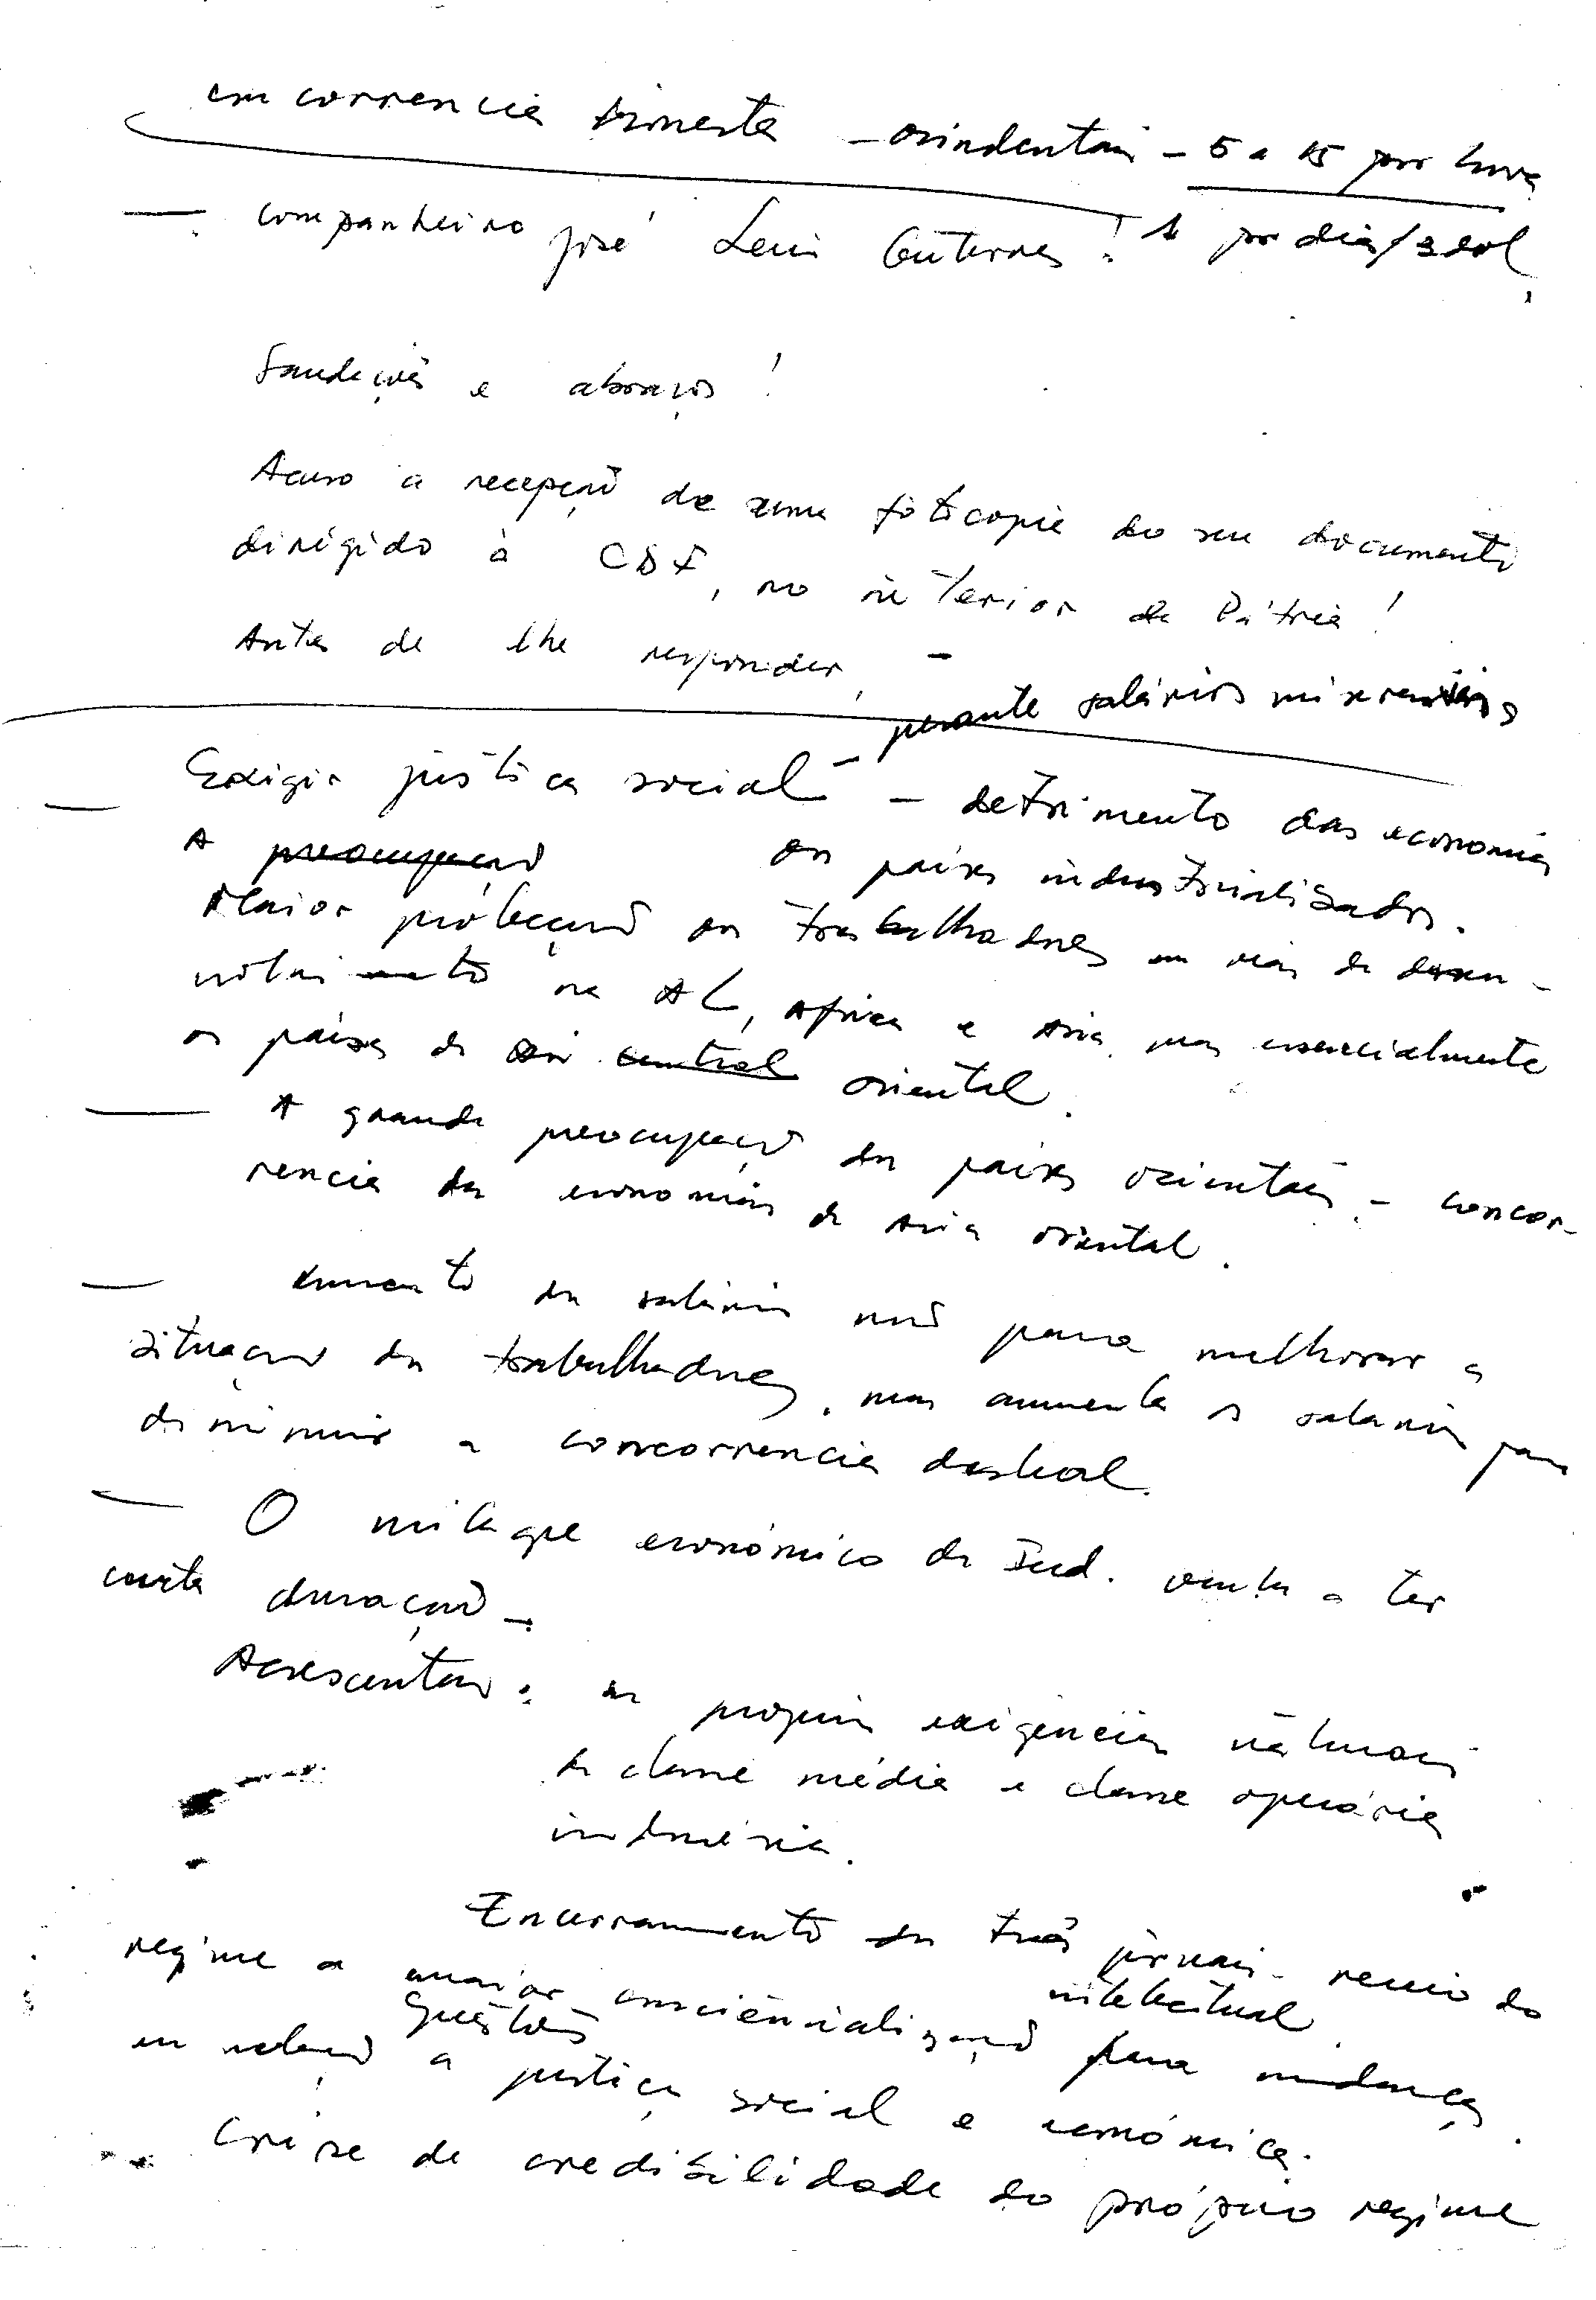 concorrencia honesta – ocidentais – 5 a 15 por hora
– companheiro José Luis Guterres! 1 por dia/3 dol
Saudações e abraços!
Acuso a recepção de uma fotocopia do seu documento
dirigido à CDF, no interior da Pátria!
Antes de lhe responder, –
perante salários miseráveis
– Exigir justiça social – detrimento das economias
A preocupação dos países industrializados.
Maior protecção dos trabalhadores em vias de desen-
volvimento na AL, Africa e Asia, mas essencialmente
os países da central oriental.
– A grande preocupação dos países ocidentais – concor-
rencia das economias da Asia oriental.
– Aumento dos salários não para melhorar a
situação dos trabalhadores, mas aumenta os salários para
diminuir a concorrencia desleal.
– O milagre económico da Ind. venha a ter
curta duração –
Acrescentar: as proprias exigências naturais
da classe média e classe operária
indonésia.
Encerramento dos três jornais – receio do
regime a maior consciencialização intelectual para mudança
em relação a questões justiça social e económica.
Crise de credibilidade do próprio regime